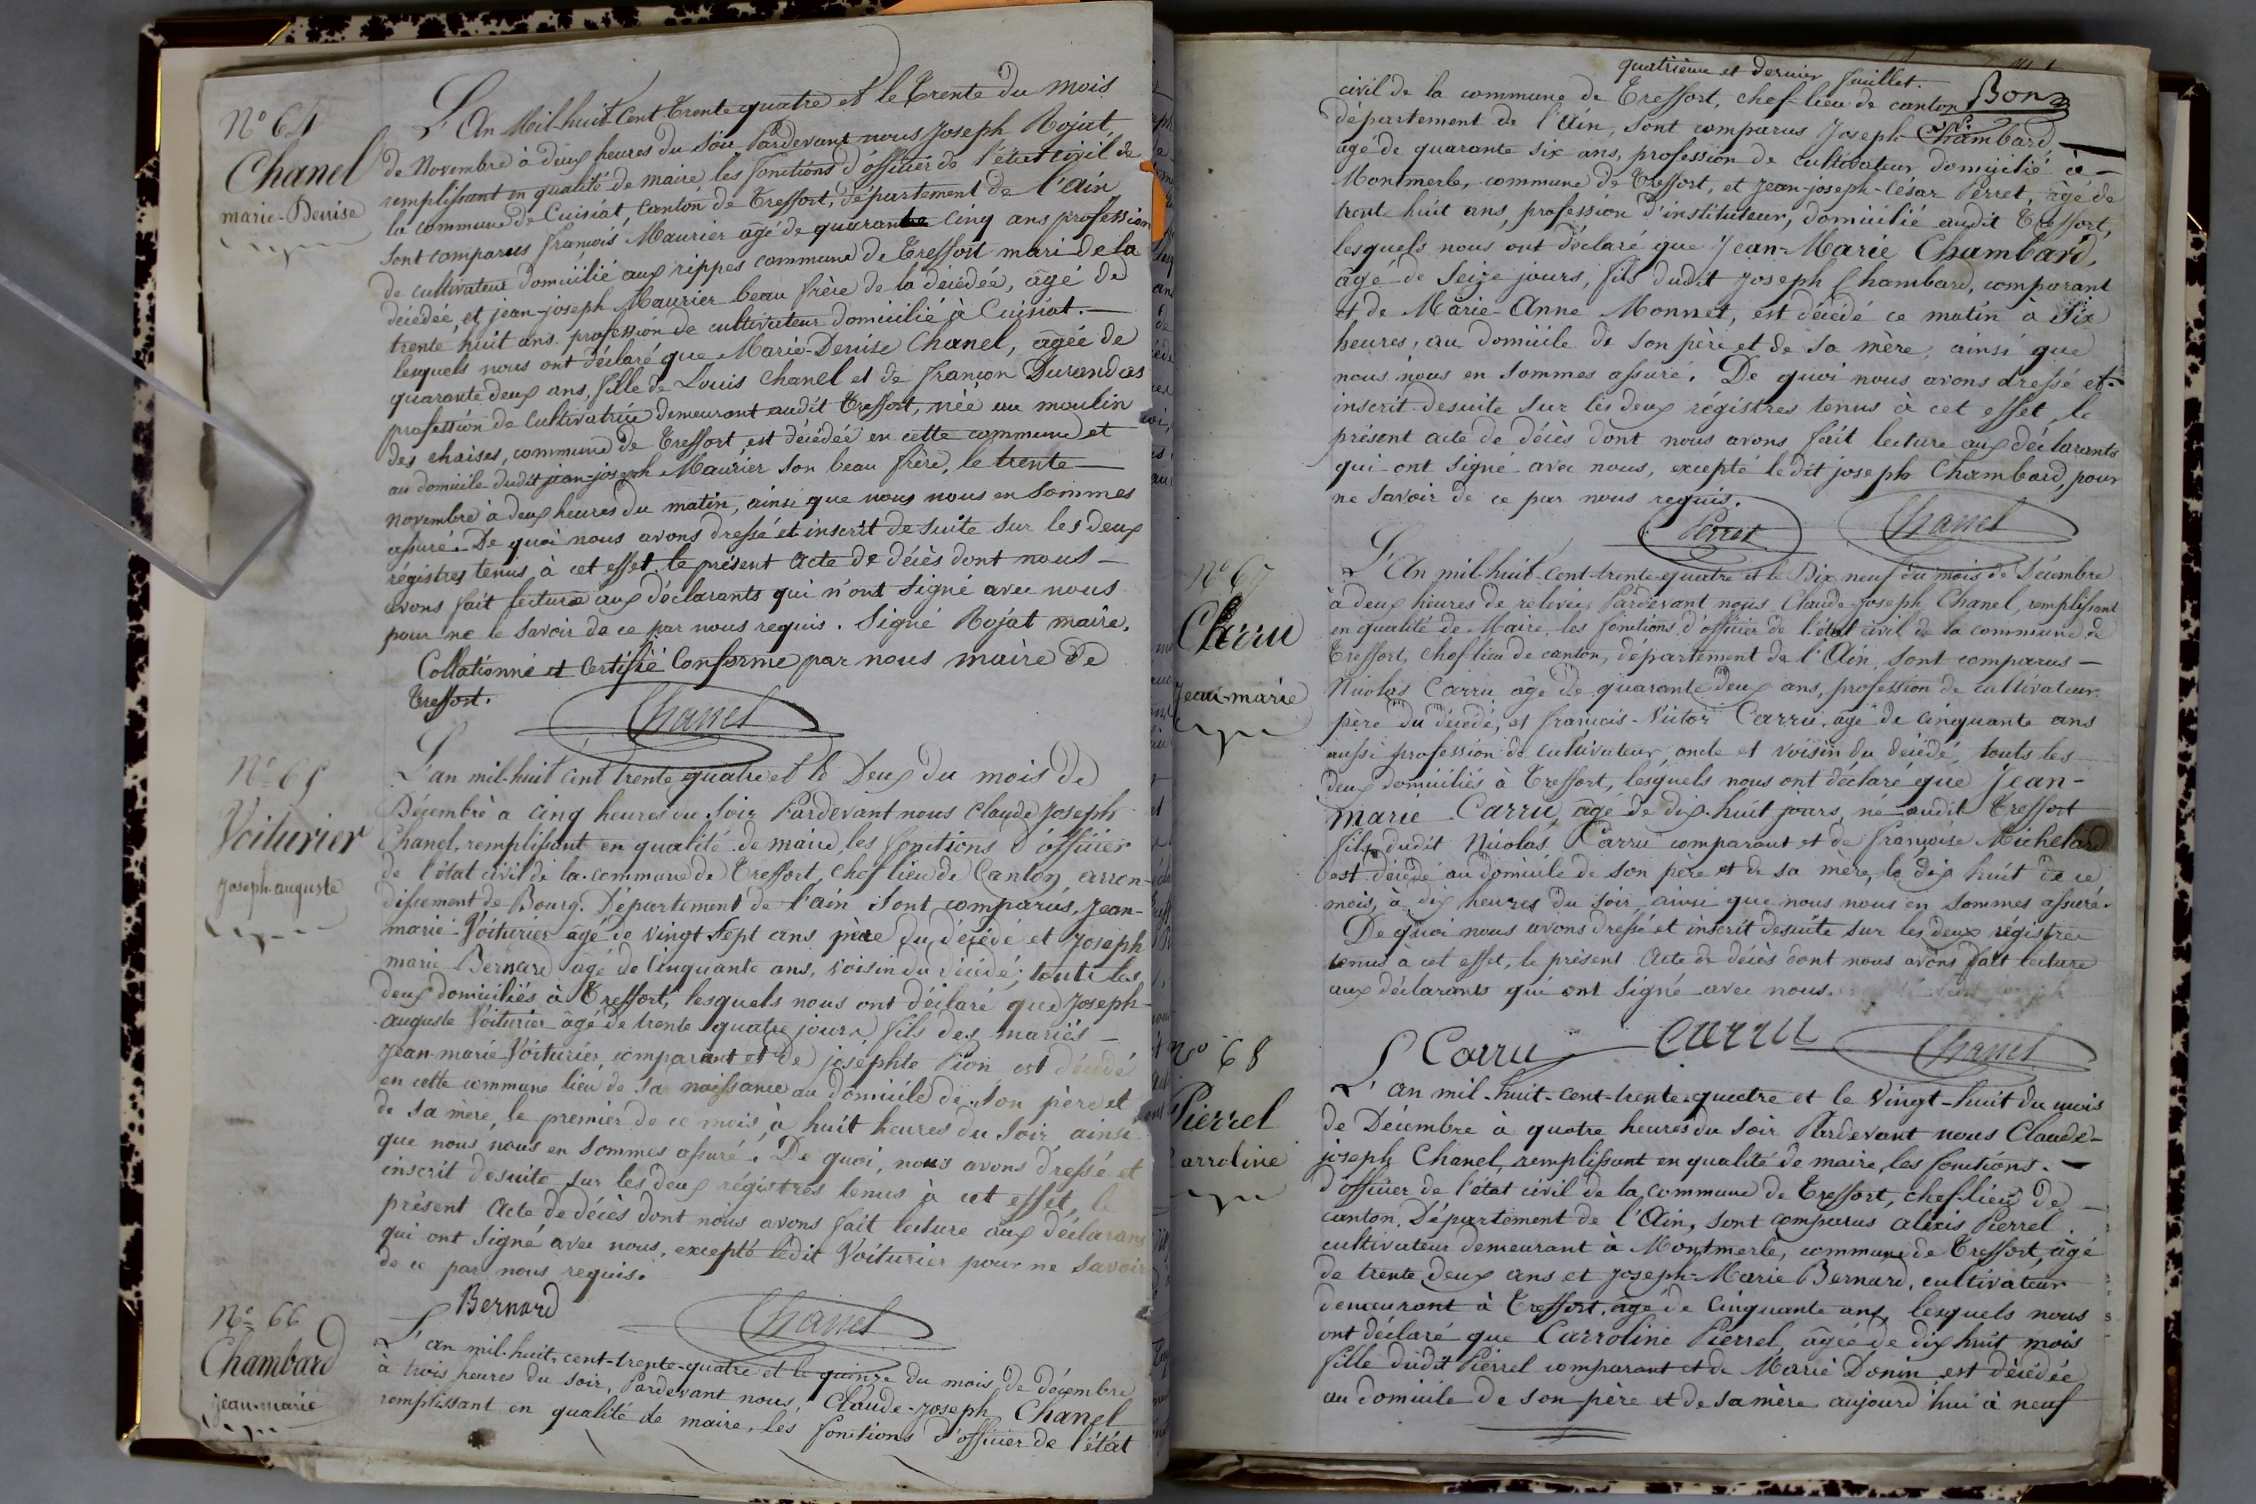 N° 64
Chanel
marie-Denise
L'An Mil-huit-Cent trente quatre et le trente du mois
de Novembre à deux heures du soir Pardevant nous Joseph Rojat
remplissant en qualité de maire les fonctions d'officier de l'état civil de
la commune de Cuisiat, canton de Treffort, département de l'ain,
sont comparus françois Maurier âgé de quarante cinq ans profession
de cultivateur domicilié aux rippes commune de Treffort mari de la
décédée, et jean-joseph Maurier beau frère de la décédée, âgé de
trente huit ans profession de cultivateur domicilié à Cuisiat.
lesquels nous ont déclaré que Marie-Denise Chanel, âgée de
quarante deux ans, fille de Louis Chanel et de françon Durandas
profession de cultivatrice demeurant audit Treffort, née au moulin
des chaises, commune de Treffort, est décédée en cette commune et
au domicile dudit jean-joseph Maurier son beau frère, le trente
novembre à deux heures du matin, ainsi que nous nous en sommes
assuré. De quoi nous avons dressé et inscrit de suite sur les deux
régistres tenus à cet effet, le présent acte de décès dont nous
avons fait lecture aux déclarants qui n'ont signé avec nous
pour ne le savoir de ce par nous requis. Signé Rojat maire.
Collationné et certifié conforme par nous maire de
Treffort.
Chanel
N° 65
Voiturier
Joseph auguste
L'an mil-huit cent trente quatre et le Deux du mois de
Décembre à cinq heures du soir Pardevant nous Claude Joseph
Chanel, remplissant en qualité de maire, les fonctions d'officier
de l'état civil de la commune de Treffort, chef lieu de Canton, arron-
dissement de Bourg. Département de l'ain sont comparus, Jean-
marie Voiturier âgé de vingt sept ans père du décédé et Joseph
marie Bernard âgé de cinquante ans, voisin du décédé; touts les
deux domiciliés à Treffort, lesquels nous ont déclaré que Joseph-
auguste Voiturier âgé de trente quatre jours, fils des mariés
Jean-marie Voiturier comparant et de josephte Pion est décédé
en cette commune lieu de sa naissance au domicile de son père et
de sa mère, le premier de ce mois, à huit heures du soir, ainsi
que nous nous en sommes assuré. De quoi, nous avons dressé et
inscrit desuite sur les deux régistres tenus à cet effet, le
présent acte de décès dont nous avons fait lecture aux déclarans
qui ont signé avec nous, excepté ledit Voiturier pour ne savoir
de ce par nous requis.
Bernard
Chanel
N° 66
Chambard
jean-marie
L'an mil-huit-cent-trente-quatre et le quinze du mois de décembre
à trois heures du soir, Pardevant nous, Claude-Joseph Chanel
remplissant en qualité de maire, les fonctions d'officier de l'état
quatrième et dernier feuillet.
Bon
civil de la commune de Treffort, chef-lieu de canton
département de l'ain, sont comparus Joseph Chambard
âgé de quarante six ans, profession de cultivateur, domicilié à
Montmerle, commune de Treffort, et Jean-Joseph-César Perret, âgé de
trente huit ans, profession d'instituteur, domicilié audit Treffort,
lesquels nous ont déclaré que Jean-Marie Chambard,
âgé de seize jours, fils dudit Joseph Chambard, comparant
et de Marie-Anne Monnet, est décédé ce matin à six
heures, au domicile de son père et de sa mère, ainsi que
nous nous en sommes assuré. De quoi nous avons dressé et
inscrit desuite sur les deux régistres tenus à cet effet, le
présent acte de décès dont nous avons fait lecture aux déclarants
qui ont signé avec nous, excepté ledit joseph Chambard, pour
ne savoir de ce par nous requis.
Perret
Chanel
N° 67
Carru
Jean-marie
L'An mil-huit-cent-trente-quatre et le Dix neuf du mois de Décembre
à deux heures de relevée, Pardevant nous Claude-Joseph Chanel, remplissant
en qualité de Maire, les fonctions d'officier de l'état civil de la commune de
Treffort, chef-lieu de canton, département de l'Ain, sont comparus
Nicolas Carru âgé de quarante deux ans, profession de cultivateur
père du décédé, et françois-Victor Carru, âgé de cinquante ans
aussi profession de cultivateur, oncle et voisin du décédé, touts les
deux domiciliés à Treffort, lesquels nous ont déclaré que jean-
marie Carru, âgé de dix-huit jours, né audit Treffort
fils dudit Nicolas Carru comparant et de françoise Michelard
est décédé au domicile de son père et de sa mère, le dix huit de ce
mois, à dix heures du soir, ainsi que nous nous en sommes assuré.
De quoi nous avons dressé et inscrit desuite sur les deux régistres
tenus à cet effet, le présent acte de décès dont nous avons fait lecture
aux déclarants qui ont signé avec nous.
Carru
Carru
Chanel
N° 68
Pierrel
Carroline
L'an mil-huit-cent-trente-quatre et le vingt-huit du mois
de Décembre à quatre heures du soir Pardevant nous Claude-
joseph Chanel, remplissant en qualité de maire, les fonctions
d'officier de l'état civil de la commune de Treffort, chef-lieu de
canton, Département de l'Ain, sont comparus alexis Pierrel
cultivateur demeurant à Montmerle, commune de Treffort, âgé
de trente deux ans et Joseph-Marie Bernard, cultivateur
demeurant à Treffort, âgé de cinquante ans, lesquels nous
ont déclaré que Carroline Pierrel, âgée de dix huit mois
fille dudit Pierrel comparant et de Marie Donin est décédée
au domicile de son père et de sa mère aujourd'hui à neuf